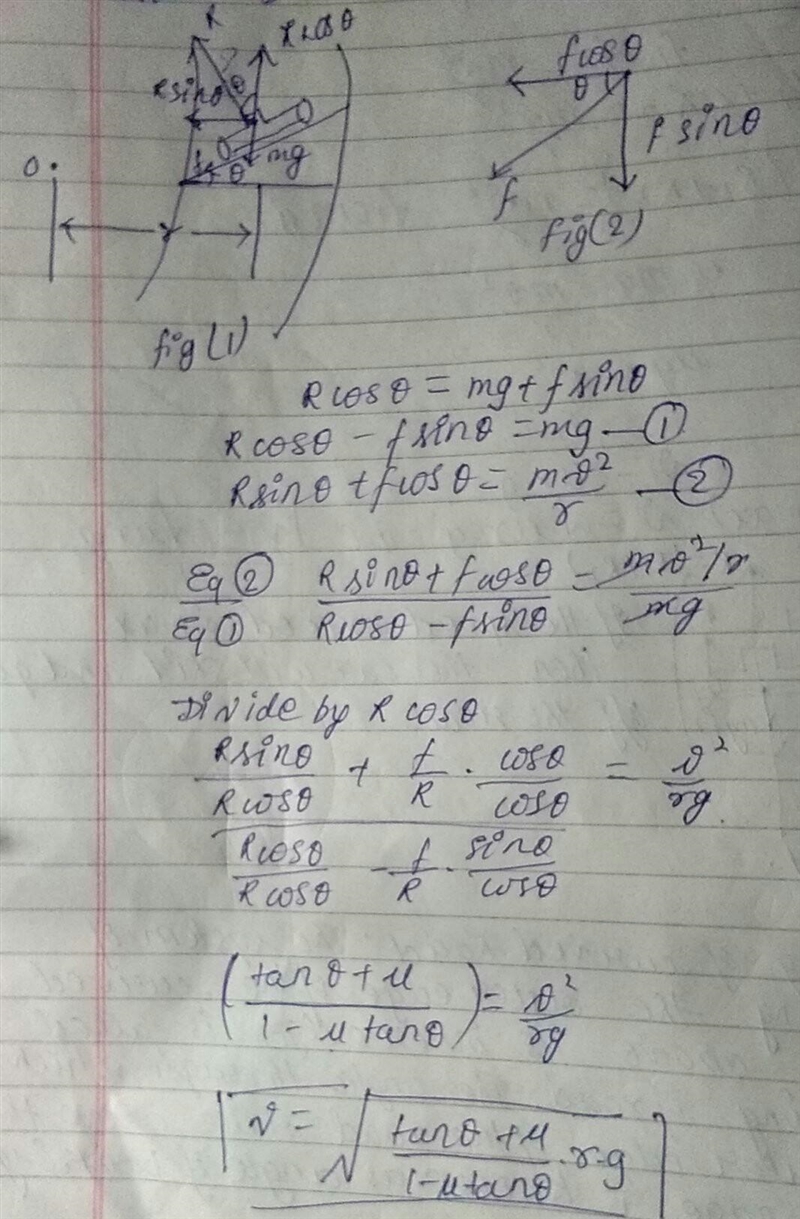 R
R cosθ
R sinθ
θ
mg
f
θ
O
fig (1)
f cosθ
θ
f sinθ
f
fig (2)
R cosθ = mg + f sinθ
R cosθ - f sinθ = mg — ①
R sinθ + f cosθ = mv²/r — ②
Eq ② / Eq ① (R sinθ + f cosθ) / (R cosθ - f sinθ) = (mv²/r) / mg
Divide by R cosθ
(R sinθ / R cosθ + f/R · cosθ/cosθ) / (R cosθ / R cosθ - f/R · sinθ/cosθ) = v²/rg
((tanθ + μ) / (1 - μ tanθ)) = v²/rg
v = √((tanθ + μ) / (1 - μ tanθ) · r·g)